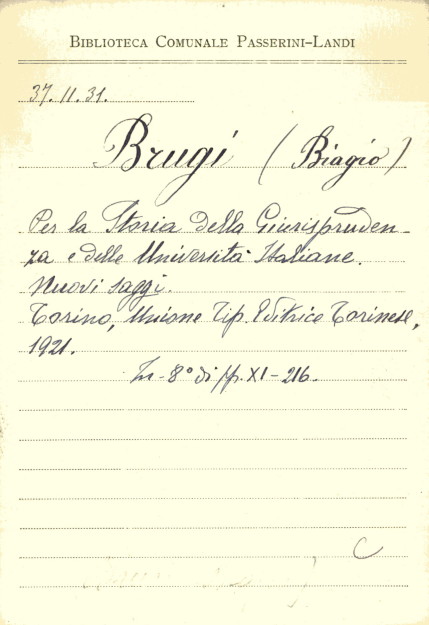 BIBLIOTECA COMUNALE PASSERINI-LANDI
37.11.31.
Brugi (Biagio)
Per la Storia della Giurispruden-
za e delle Università Italiane.
Nuovi saggi.
Torino, Unione Tip. Editrice Torinese,
1921.
In-8° di pp. XI-216.
C